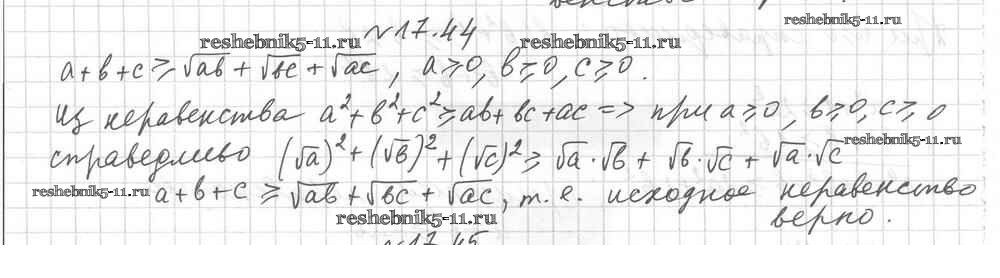 reshebnik5-11.ru
№17.44
reshebnik5-11.ru reshebnik5-11.ru
a+b+c ≥ √ab + √bc + √ac, a≥0, b≥0, c≥0.
Из неравенства a²+b²+c² ≥ ab+bc+ac => при a≥0, b≥0, c≥0
reshebnik5-11.ru
справедливо (√a)²+(√b)²+(√c)² ≥ √a·√b + √b·√c + √a·√c
reshebnik5-11.ru
a+b+c ≥ √ab+√bc+√ac, т.е. исходное неравенство
верно.
reshebnik5-11.ru
№17.45